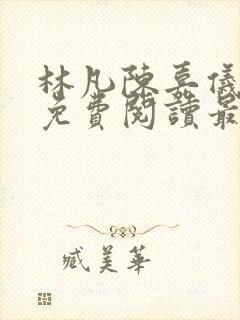 林凡陳嘉儀
免費閱讀最
臧美華